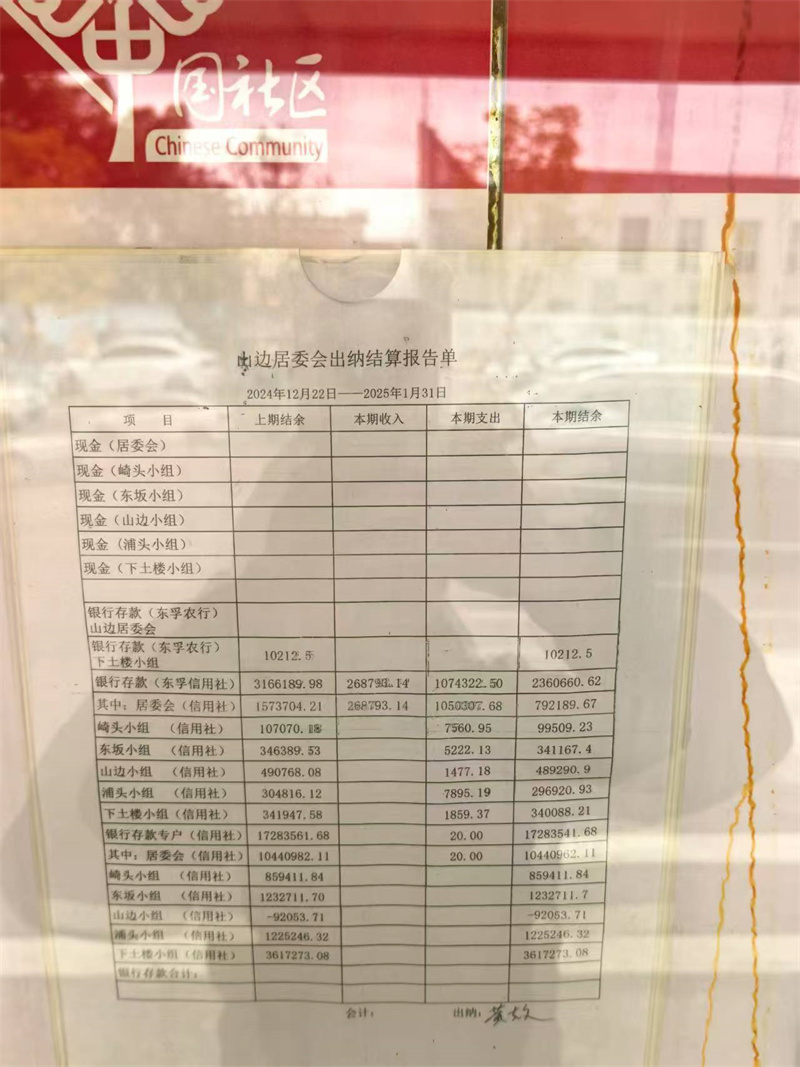 中国社区
Chinese Community
山边居委会出纳结算报告单
2024年12月22日——2025年1月31日
项 目 上期结余 本期收入 本期支出 本期结余
现金（居委会）
现金（崎头小组）
现金（东坂小组）
现金（山边小组）
现金（浦头小组）
现金（下土楼小组）
银行存款（东孚农行）
山边居委会
银行存款（东孚农行）
下土楼小组 10212.5 10212.5
银行存款（东孚信用社） 3166189.98 268793.14 1074322.50 2360660.62
其中：居委会（信用社） 1573704.21 268793.14 1050307.68 792189.67
崎头小组 （信用社） 107070.18 7560.95 99509.23
东坂小组 （信用社） 346389.53 5222.13 341167.4
山边小组 （信用社） 490768.08 1477.18 489290.9
浦头小组 （信用社） 304816.12 7895.19 296920.93
下土楼小组（信用社） 341947.58 1859.37 340088.21
银行存款专户（信用社） 17283561.68 20.00 17283541.68
其中：居委会（信用社） 10440982.11 20.00 10440962.11
崎头小组 （信用社） 859411.84 859411.84
东坂小组 （信用社） 1232711.70 1232711.7
山边小组 （信用社） -92053.71 -92053.71
浦头小组 （信用社） 1225246.32 1225246.32
下土楼小组（信用社） 3617273.08 3617273.08
银行存款合计：
会计： 出纳：